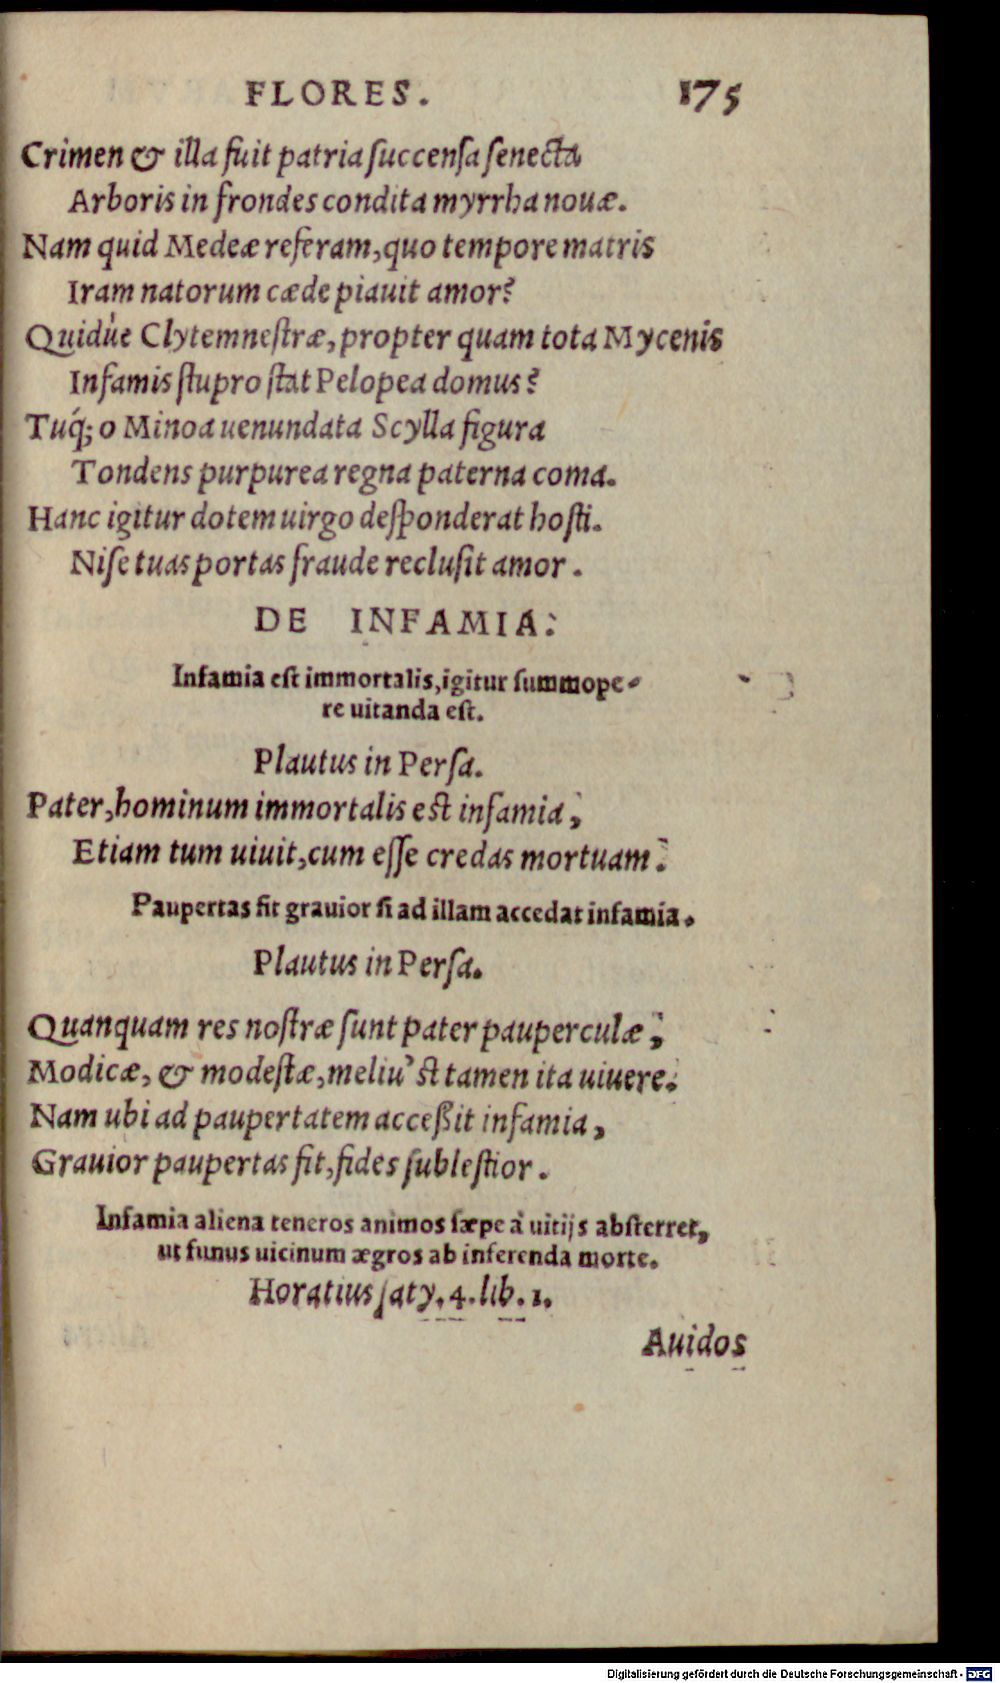 FLORES. 175
Crimen & illa fuit patria ſuccenſa ſenecta
Arboris in frondes condita myrrha nouæ.
Nam quid Medeæ referam, quo tempore matris
Iram natorum cæde piauit amor?
Quidúe Clytemneſtræ, propter quam tota Mycenis
Infamis ſtupro ſtat Pelopea domus?
Tuq́; o Minoa uenundata Scylla figura
Tondens purpurea regna paterna coma.
Hanc igitur dotem uirgo deſponderat hoſti.
Niſe tuas portas fraude recluſit amor.
DE INFAMIA.
Infamia eſt immortalis, igitur ſummope-
re uitanda eſt.
Plautus in Perſa.
Pater, hominum immortalis eſt infamia;
Etiam tum uiuit, cum eſſe credas mortuam.
Paupertas fit grauior ſi ad illam accedat infamia.
Plautus in Perſa.
Quanquam res noſtræ ſunt pater pauperculæ;
Modicæ, & modeſtæ, meliu' ſt tamen ita uiuere:
Nam ubi ad paupertatem acceßit infamia,
Grauior paupertas fit, fides ſubleſtior.
Infamia aliena teneros animos ſæpe à uitijs abſterret,
ut funus uicinum ægros ab inferenda morte.
Horatius ſaty. 4. lib. 1.
Auidos
Digitalisierung gefördert durch die Deutsche Forschungsgemeinschaft - DFG